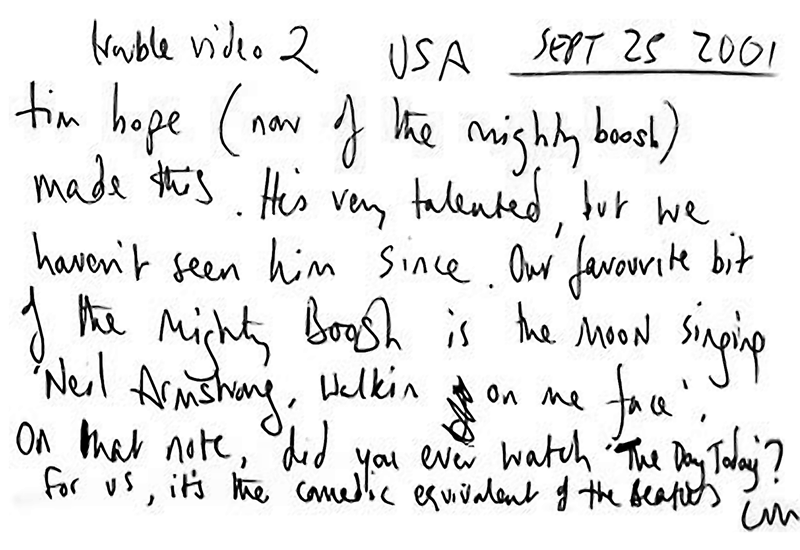 trouble video 2 USA SEPT 25 2001
tim hope (now of the mighty boosh)
made this. He's very talented, but we
haven't seen him since. Our favourite bit
of the Mighty Boosh is the MOON singing
'Neil Armstrong, Walkin on me face'.
On that note, did you ever watch 'The Day Today'?
For us, it's the comedic equivalent of the Beatles